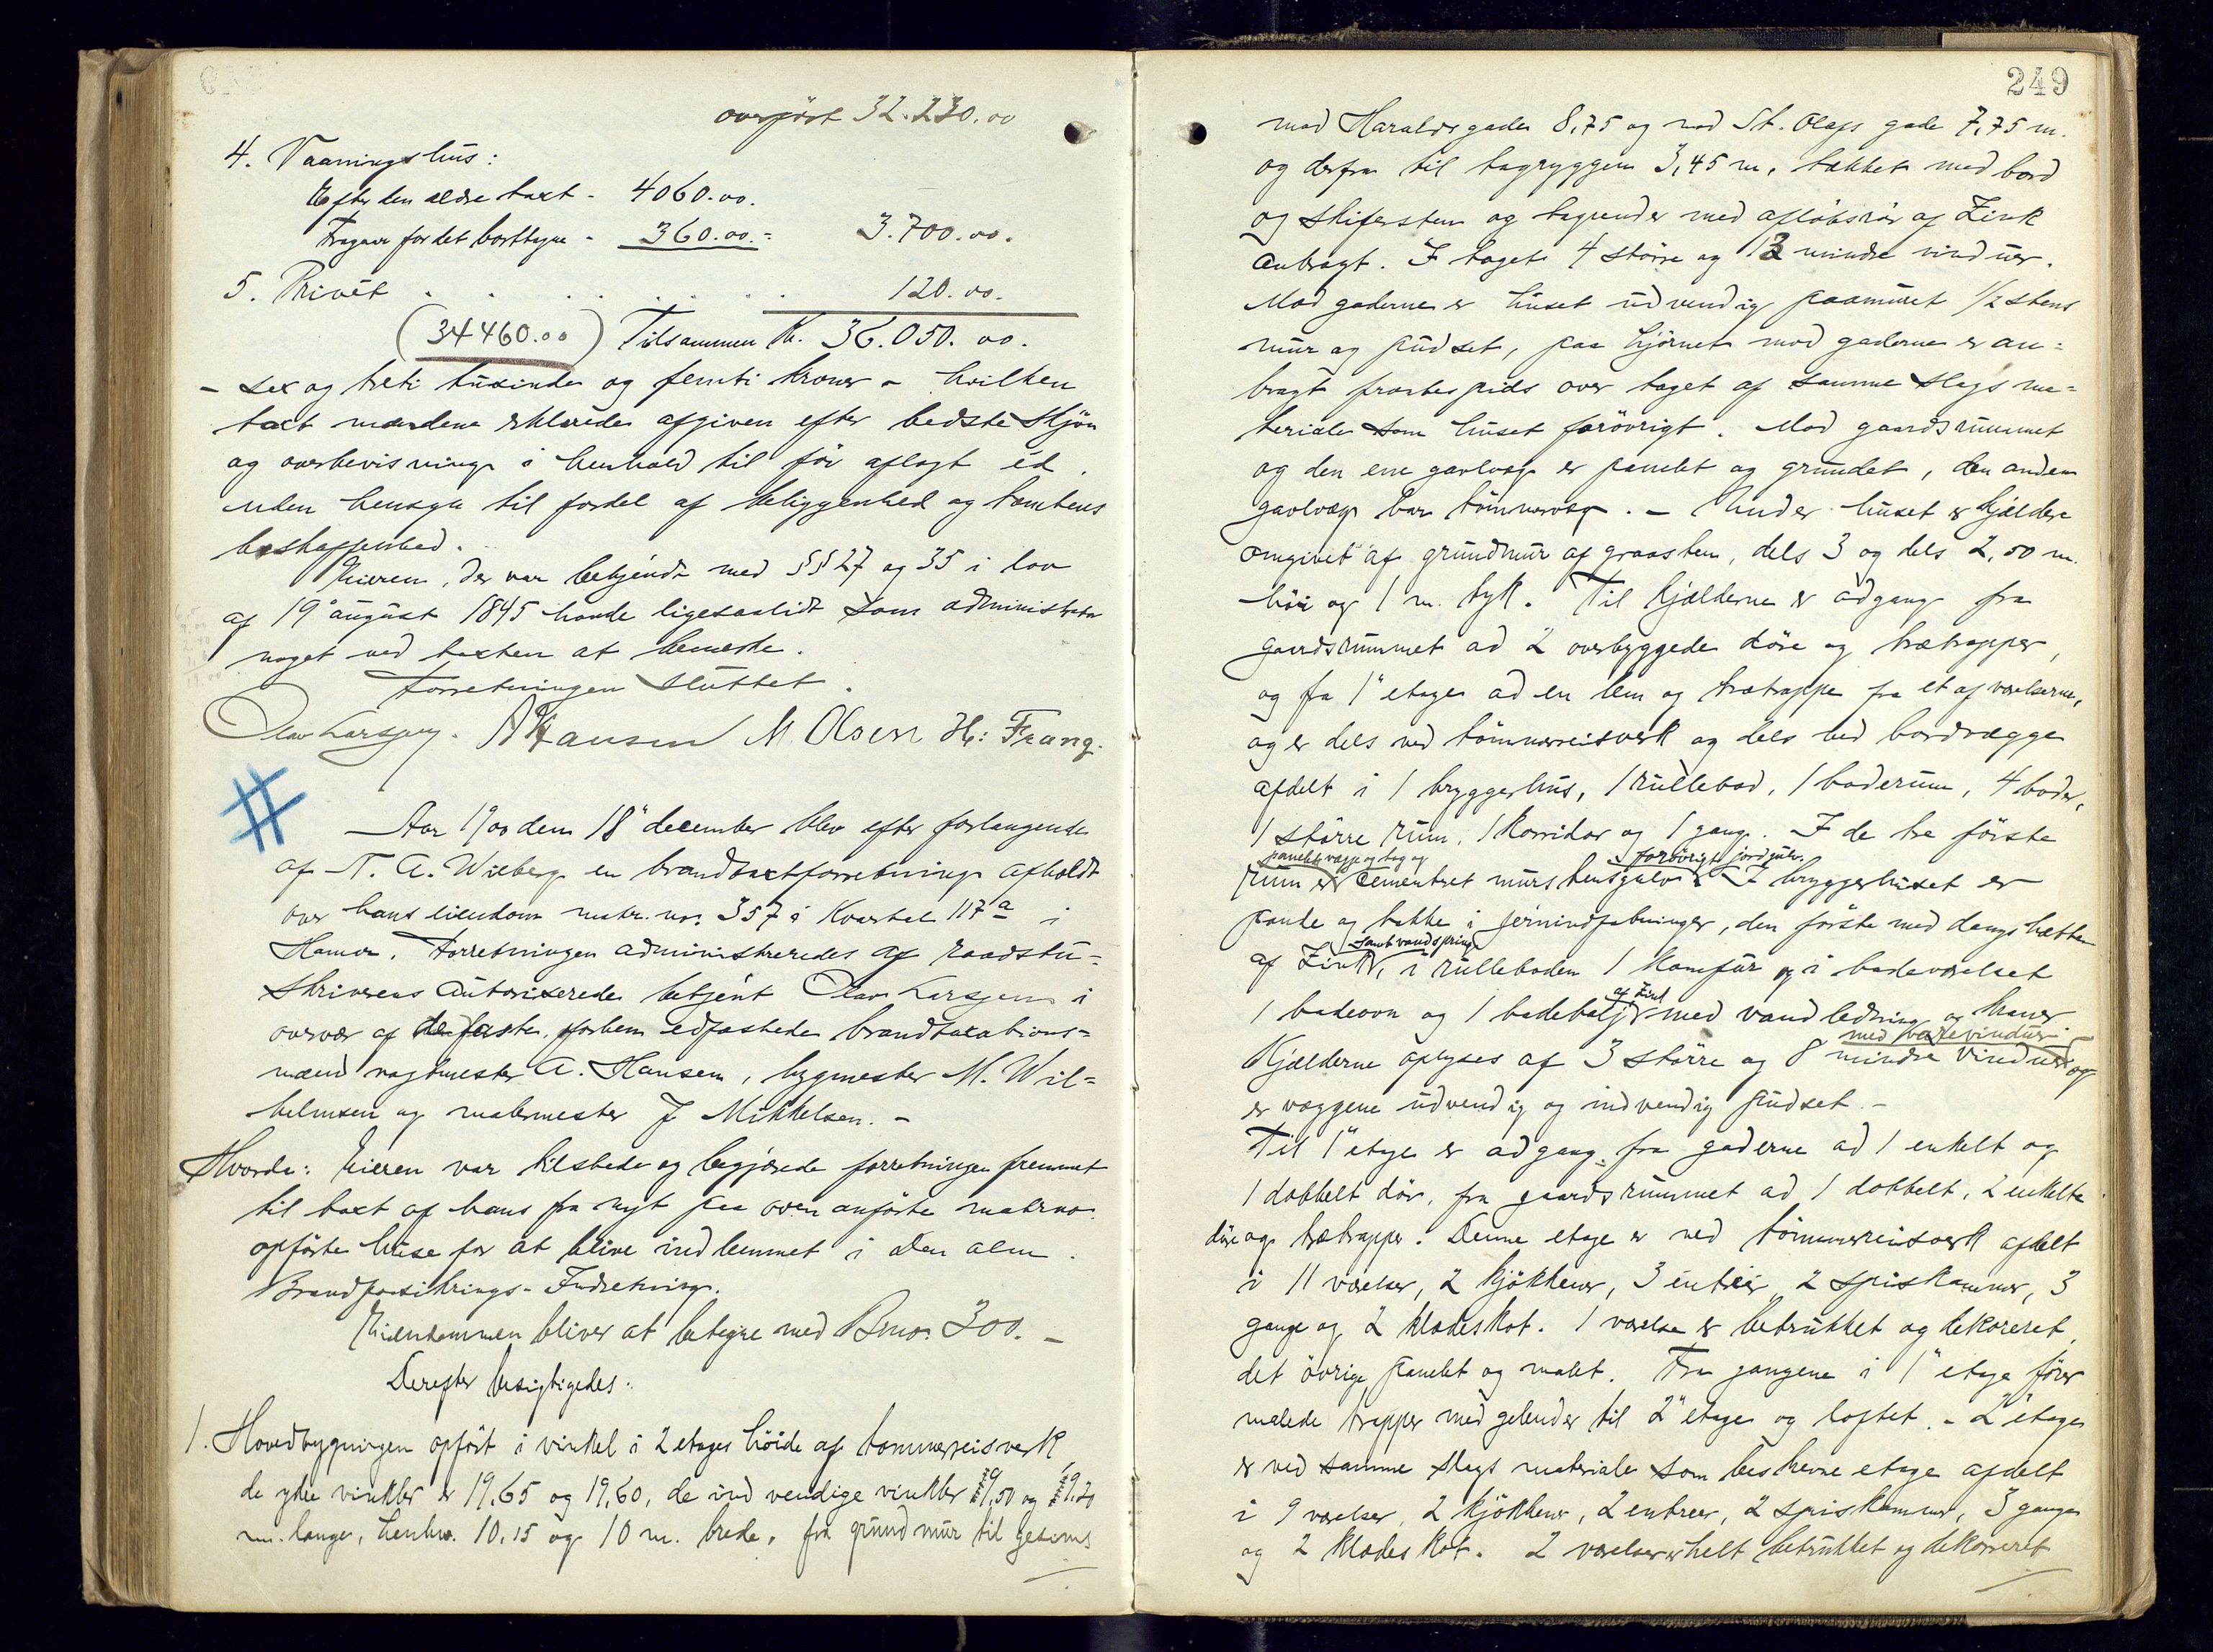 overført 32.230.00
4. Vaaningshus:
Efter den ældre taxt - 4060.00.
Fragaar for det borttagne - 360.00. = 3.700.00.
5. Privét . . . . . . . 120.00.
(34460.00) Tilsammen Kr. 36.050.00.
- sex og treti tusinde og femti kroner - hvilken
taxt mændene erklærede afgiven efter bedste skjøn
og overbevisning i henhold til før aflagt ed,
uden hensyn til fordel af beliggenhed og tomtens
beskaffenhed.
Eieren, der var bekjendt med §§ 27 og 35 i lov
af 19de august 1845 havde ligesaalidt som administrator
noget ved taxten at bemerke.
Forretningen sluttet.
Olav Larsgen. A Hansen M. Olsen H: Frang.
#
Aar 1900 den 18" december blev efter forlangende
af N. A. Wiberg en brandtaxtforretning afholdt
over hans eiendom matr. no. 357 i Kvartal 117 a i
Hamar. Forretningen administreredes af raadstu-
skriverens autoriserede betjent Olav Larsgen i
overvær af de faste, forhen edfæstede brandtaxations-
mænd vagtmester A. Hansen, bygmester M. Wil-
helmsen og malermester J Mikkelsen. -
Hvorda: Eieren var tilstede og begjærede forretningen fremmet
til taxt af hans fra nyt paa oven anførte matrno.
opførte huse for at blive indlemmet i den alm.
Brandforsikrings-Indretning.
Eiendommen bliver at betegne med Brno. 300. -
Derefter besigtigedes:
1. Hovedbygningen opført i vinkel i 2 etages høide af tømmerreisverk,
de ydre vinkler er 19,65 og 19,60, de indvendige vinkler 9,50 og 9,20
m. lange, henhv. 10,15 og 10 m. brede, fra grundmur til gesims
249
mod Haralds gade 8,75 og mod St. Olafs gade 7,75 m.
og derfra til tagryggen 3,45 m, tækket med bord
og skifersten og tagrender med afløbsrør af Zink
anbragt. I taget 4 større og 13 mindre vinduer.
Mod gaderne er huset udvendig paamuret 1/2 stens
mur og pudset, paa hjørnet mod gaderne er an-
bragt frontespids over taget af samme slags ma-
teriale som huset forøvrigt. Mod gaardsrummet
og den ene gavlvæg er panelt og grundet, den anden
gavlvæg bar tømmervæg. - Under huset er kjældere
omgivet af grundmur af graasten, dels 3 og dels 2,50 m.
høi og 1 m. tyk. Til kjælderne er adgang fra
gaardsrummet ad 2 overbyggede døre og trætrapper,
og fra 1" etage ad en lem og trætrappe fra et af værelserne,
og er dels ved tømmerreisverk og dels ved bordvægge
afdelt i 1 bryggerhus, 1 rullebod, 1 baderum, 4 boder,
1 større rum, 1 korridor og 1 gang. I de tre første
panelte vægge og tag og forøvrigt jordgulv.
rum er cementeret murstensgulv. I bryggerhuset er
pande og takke i jernindfatninger, den første med damphætte
samt vandspring
af Zink, i rulleboden 1 komfur og i badeværelset
af Zink
1 badeovn og 1 badebalje med vandledning og kraner
med varevinduer
Kjælderne oplyses af 3 større og 8 mindre vinduer og
er væggene udvendig og indvendig pudset. -
Til 1" etage er adgang fra gaderne ad 1 enkelt og
1 dobbelt dør, fra gaardsrummet ad 1 dobbelt, 2 enkelte
døre og trætrapper. Denne etage er ved tømmerreisverk afdelt
i 11 værelser, 2 kjøkkener, 3 entréer, 2 spiskammer, 3
gange og 2 klædeskot. 1 værelse er betrukket og dekoreret,
det øvrige panelet og malet. Fra gangene i 1" etage fører
malede trapper med gelender til 2" etage og loftet. - 2" etage
er ved samme slags materiale som beskrevne etage afdelt
i 9 værelser, 2 kjøkkener, 2 entreer, 2 spiskammer, 3 gange
og 2 klædeskot. 2 værelser er helt betrukket og dekoreret